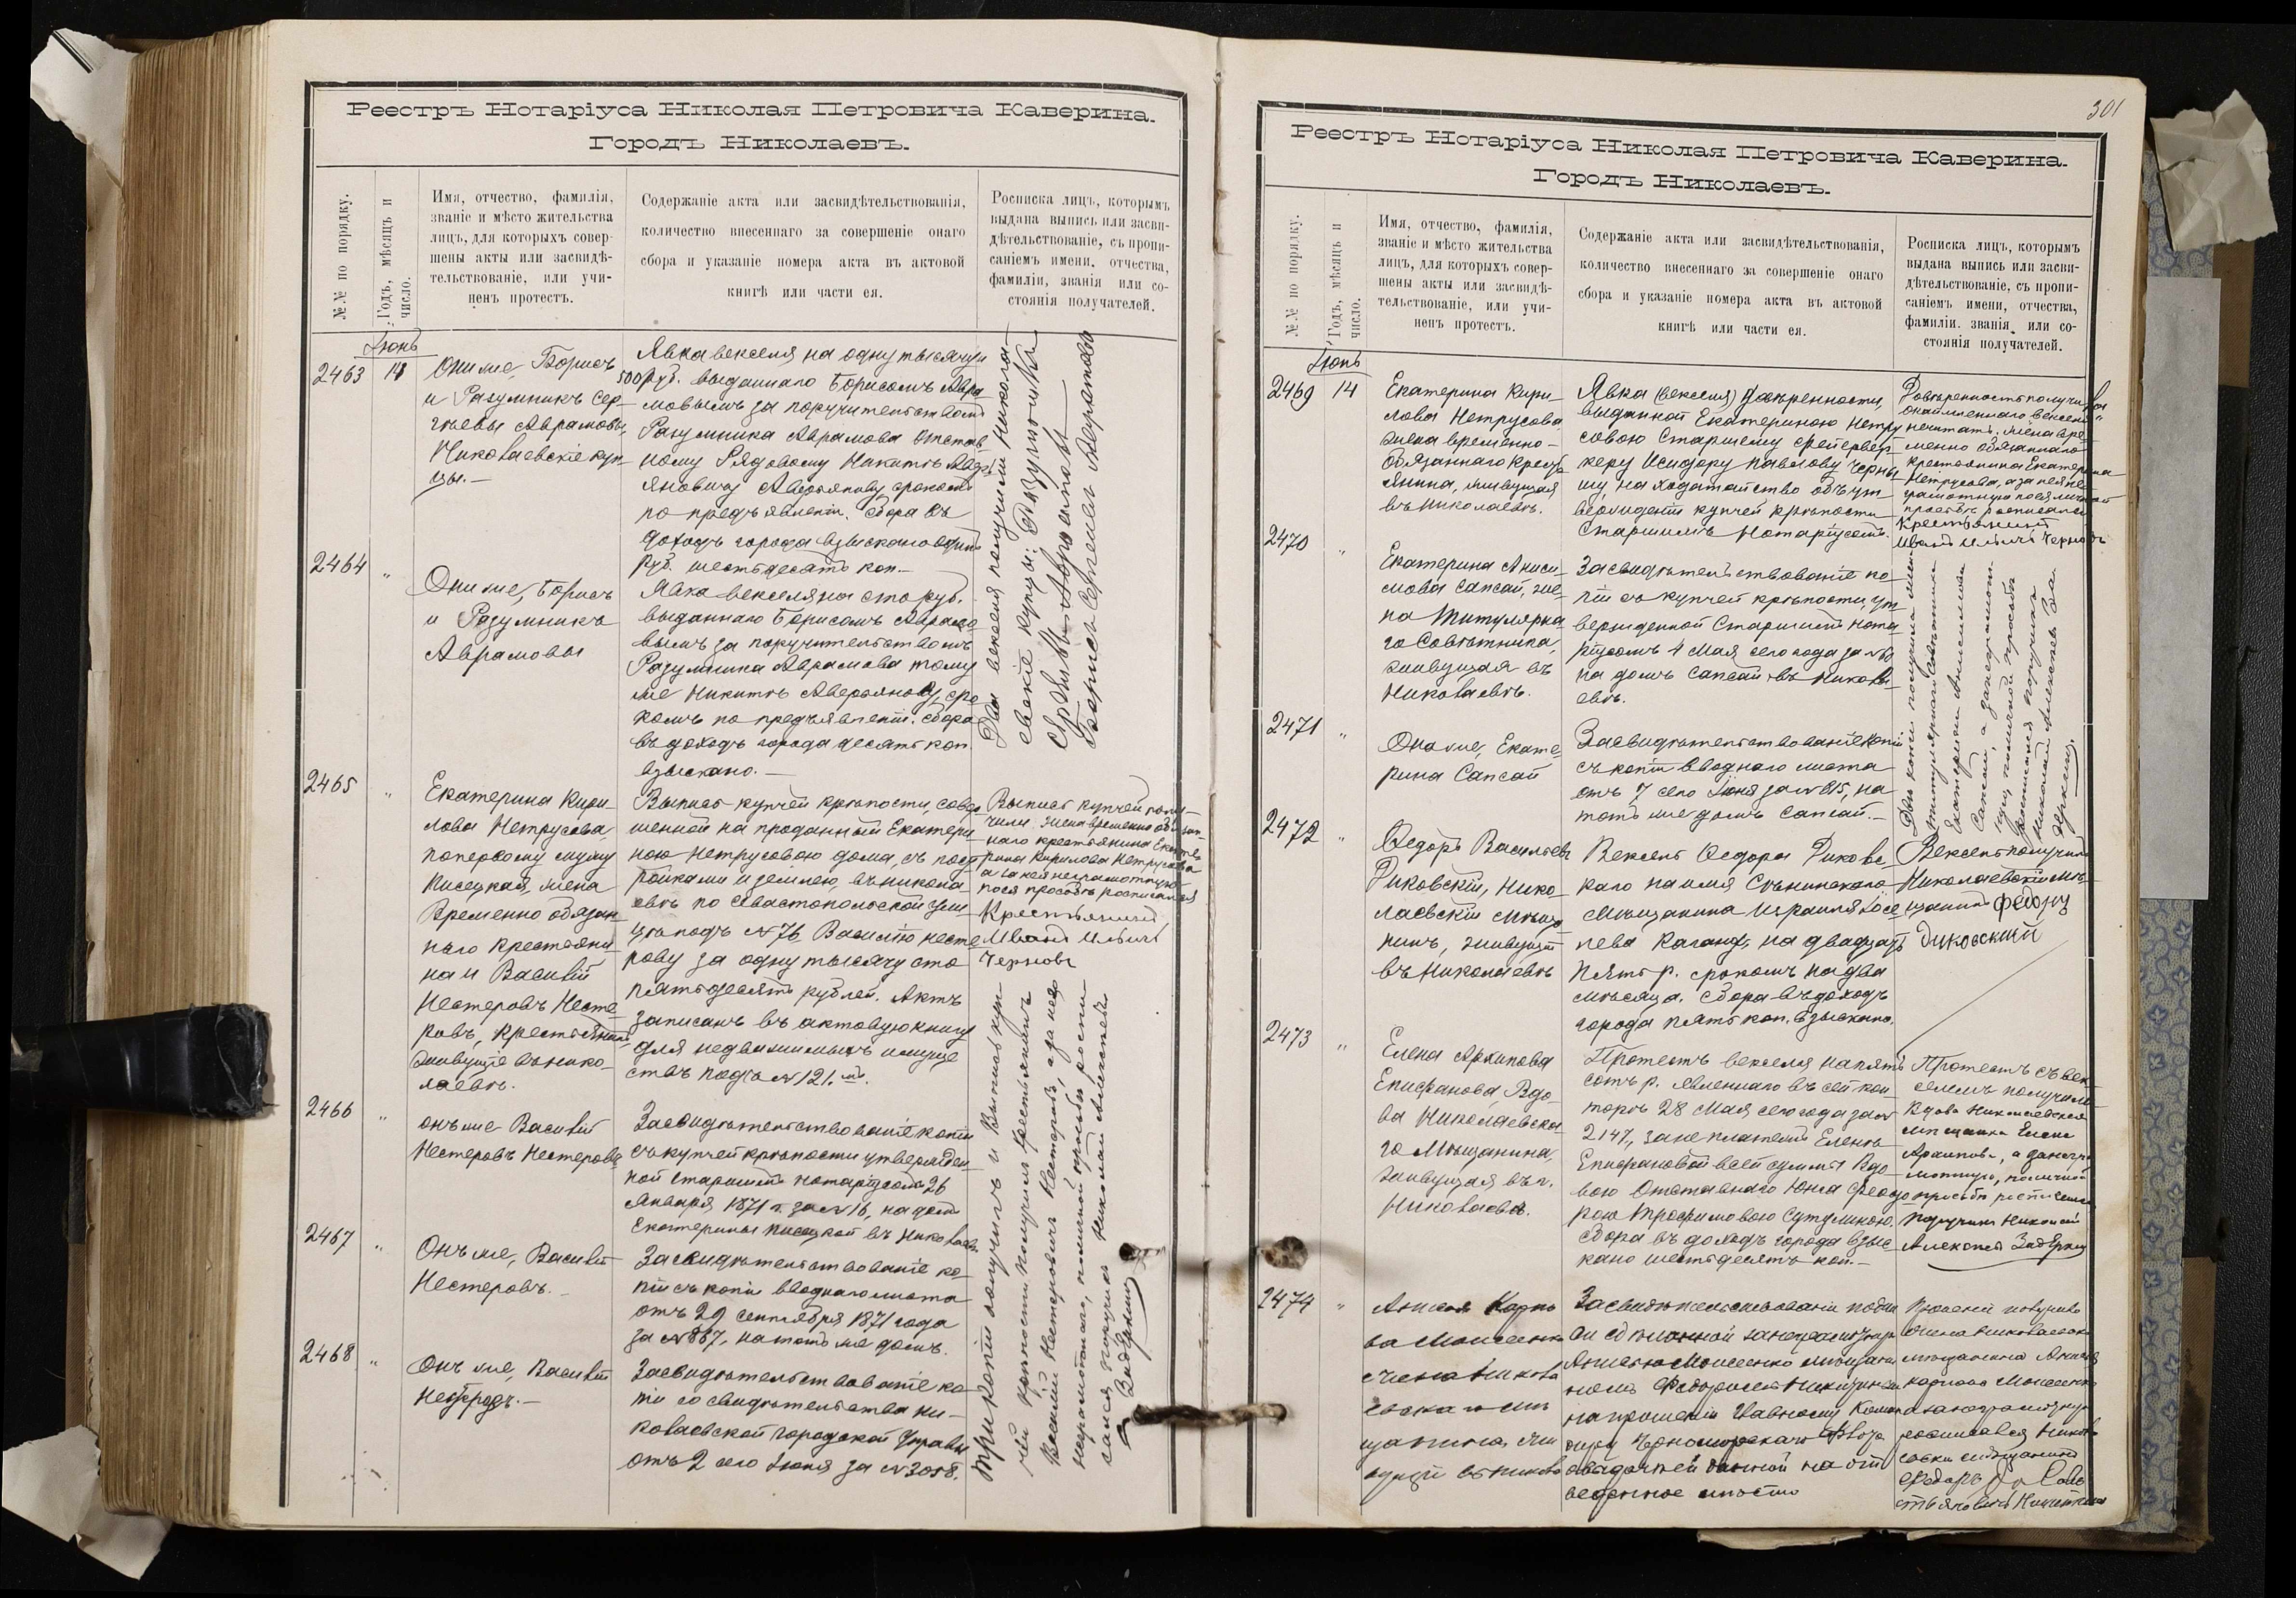 Реестръ Нотаріуса Николая Петровича Каверина.
Городъ Николаевъ.
№№ по порядку.
Годъ, мѣсяцъ и
число.
Имя, отчество, фамилія,
званіе и мѣсто жительства
лицъ, для которыхъ совер-
шены акты или засвидѣ-
тельствованіе, или учи-
ненъ протестъ.
Содержаніе акта или засвидѣтельствованія,
количество внесеннаго за совершеніе онаго
сбора и указаніе номера акта въ актовой
книгѣ или части ея.
Росписка лицъ, которымъ
выдана выпись или засви-
дѣтельствованіе, съ пропи-
саніемъ имени, отчества,
фамиліи, званія или со-
стоянія получателей.
Іюнь
2463 14
Они же, Борисъ
и Разумникъ Сер-
гѣевы Аврамовы,
Николаевскіе куп-
цы.—
Явка векселя, на одну тысячу
500 руб. выданнаго Борисомъ Авра
мовымъ за поручительствомъ
Разумника Аврамова отстав
ному Рядовому Никитѣ
Аверьянову, срокомъ
по предъявленіи. Сбора въ
доходъ города взыскано одинъ
руб. шестьдесятъ коп.—
Два векселя получили Никола-
евскіе купцы: Разумникъ
Сергѣевъ Аврамовъ
Борисъ Сергѣевъ Аврамовъ
2464 "
Они же, Борисъ
и Разумникъ
Аврамовы
Явка векселя на сто руб.
выданнаго Борисомъ Аврамо
вымъ за поручительствомъ
Разумника Аврамова тому
же Никитѣ Аверьянову, сро
комъ по предъявленіи. Сбора
въ доходъ города десять коп.
взыскано.—
2465 "
Екатерина Кири-
лова Нетрусова,
по первому мужу
Кисецкая, жена
Временно обязан
наго крестьяни
на и Василій
Нестеровъ Несте
ровъ, крестьянинъ
живущіе въ Нико-
лаевѣ.
Выпись купчей крѣпости, совер
шенной на проданный Екатери
ною Нетрусовою дома, съ пост
ройками и землею, въ Никола
евѣ по Севастопольской ули
цѣ подъ № 76, Василію Несте
рову за одну тысячу сто
пятьдесятъ рублей. Актъ
записанъ въ актовую книгу
для недвижимыхъ имуще
ствъ подъ № 121.
Выпись купчей полу-
чили жена временно обязан-
наго крестьянина Екате
рина Кирилова Нетрусова
а за нея неграмотную
по ея просьбѣ росписался
Крестьянинъ
Иванъ Ильичъ
Черновъ
2466 "
онъ же Василій
Нестеровъ Нестеровъ
Засвидѣтельствованіе копіи
съ купчей крѣпости утвержден
ной Старшимъ Нотаріусомъ 26
Января 1871 г. за № 16, на домъ
Екатерины Кисецкой въ Николаевѣ
Три копіи получилъ и выпись куп-
чей крѣпости получилъ крестьянинъ
Василій Нестеровичъ Нестеровъ, а за него
неграмотнаго, по личной просьбѣ роспи-
сался поручикъ Николай Алексѣевъ
2467 "
Онъ же, Василій
Нестеровъ.
Засвидѣтельствованіе ко-
піи съ копіи вводнаго листа
отъ 29 Сентября 1871 года
за № 887, на тотъ же домъ.
2468 "
Онъ же, Василій
Нестеровъ.—
Засвидѣтельствованіе ко
піи со свидѣтельства Ни-
колаевской городской Управы
отъ 2 сего Іюня за № 3058.
301
Реестръ Нотаріуса Николая Петровича Каверина.
Городъ Николаевъ.
№№ по порядку.
Годъ, мѣсяцъ и
число.
Имя, отчество, фамилія,
званіе и мѣсто жительства
лицъ, для которыхъ совер-
шены акты или засвидѣ-
тельствованіе, или учи-
ненъ протестъ.
Содержаніе акта или засвидѣтельствованія,
количество внесеннаго за совершеніе онаго
сбора и указаніе номера акта въ актовой
книгѣ или части ея.
Росписка лицъ, которымъ
выдана выпись или засви-
дѣтельствованіе, съ пропи-
саніемъ имени, отчества,
фамиліи, званія или со-
стоянія получателей.
Іюнь
2469 14
Екатерина Кири-
лова Нетрусова
жена временно-
обязаннаго кресть
янина, живущая
въ Николаевѣ.
Явка (векселя) довѣренности,
выданной Екатериною Нетру
совою Старшему фейервер
керу Исидору Павлову Черны
шу, на ходатайство объ ут
вержденіи купчей крѣпости
Старшимъ Нотаріусомъ.
Довѣренность получила
векселя
не читать. жена вре-
менно обязаннаго
крестьянина Екатерина
Нетрусова, а за нея не
грамотную по ея личной
просьбѣ росписался
Крестьянинъ
Иванъ Ильичъ Черновъ
2470 "
Екатерина Аниси-
мова Сапсай, же-
на Титулярна
го Совѣтника,
живущая въ
Николаевѣ.
Засвидѣтельствованіе ко-
піи съ купчей крѣпости, ут
вержденной Старшимъ Нота
ріусомъ 4 Мая сего года за №
на домъ Сапсай въ Никола
евѣ.
Двѣ копіи получила жена
титулярнаго совѣтника
Екатерина Анисимова
Сапсай, а за неграмот
ную, по личной просьбѣ
росписался поручикъ
Николай Алексѣевъ За-
2471 "
Она же, Екате-
рина Сапсай
Засвидѣтельствованіе копіи
съ копіи вводнаго листа
отъ 7 сего Іюня за № 615, на
тотъ же домъ Сапсай.—
2472 "
Ѳедоръ Васильевъ
Диковскій, Нико
лаевскій мѣща
нинъ, живущій
въ Николаевѣ
Вексель Ѳедора Диковс
каго на имя
Мѣщанина Израиля Іосе
лева Каганъ, на двадцать
пять р. срокомъ на два
мѣсяца. Сбора въ доходъ
города пять коп. взыскано.
Вексель получилъ
Николаевскій мѣ-
щанинъ Федоръ
Диковский
2473 "
Елена Архипова
Епифанова, Вдо-
ва Николаевска-
го Мѣщанина,
живущая въ г.
Николаевѣ.
Протестъ векселя на пять
сотъ р. явленнаго въ сей кон
торѣ 28 Мая сего года за №
2147, за неплатежъ Еленѣ
Епифановой всей суммы Вдо
вою Отставнаго Юнга Ѳеодо
рою Трофимовою
Сбора въ доходъ города взыс
кано шестьдесятъ коп.—
Протестъ съ век-
селемъ получила
Вдова Николаевская
мѣщанка Елена
Архипова, а за негра
мотную, по личной
просьбѣ росписался
поручикъ Николай
Алексѣевъ
2474 "
Анисья Карпо
ва Моисеенко
жена Никола
евскаго мѣ
щанина, жи
вущій въ Николаевѣ
Засвидѣтельствованіе подпи
си сдѣланной за неграмотную
Анисью Моисеенко мѣщани
номъ Федоромъ
на прошеніи Главному Коман
диру Черноморскаго Флота
о выдачѣ ей данной на от
веденное мѣсто
Прошеніе получила
жена Николаевскаго
мѣщанина Анисья
Карпова Моисеенко
а за неграмотную
росписался Никола
евскій мѣщанинъ
Федоръ